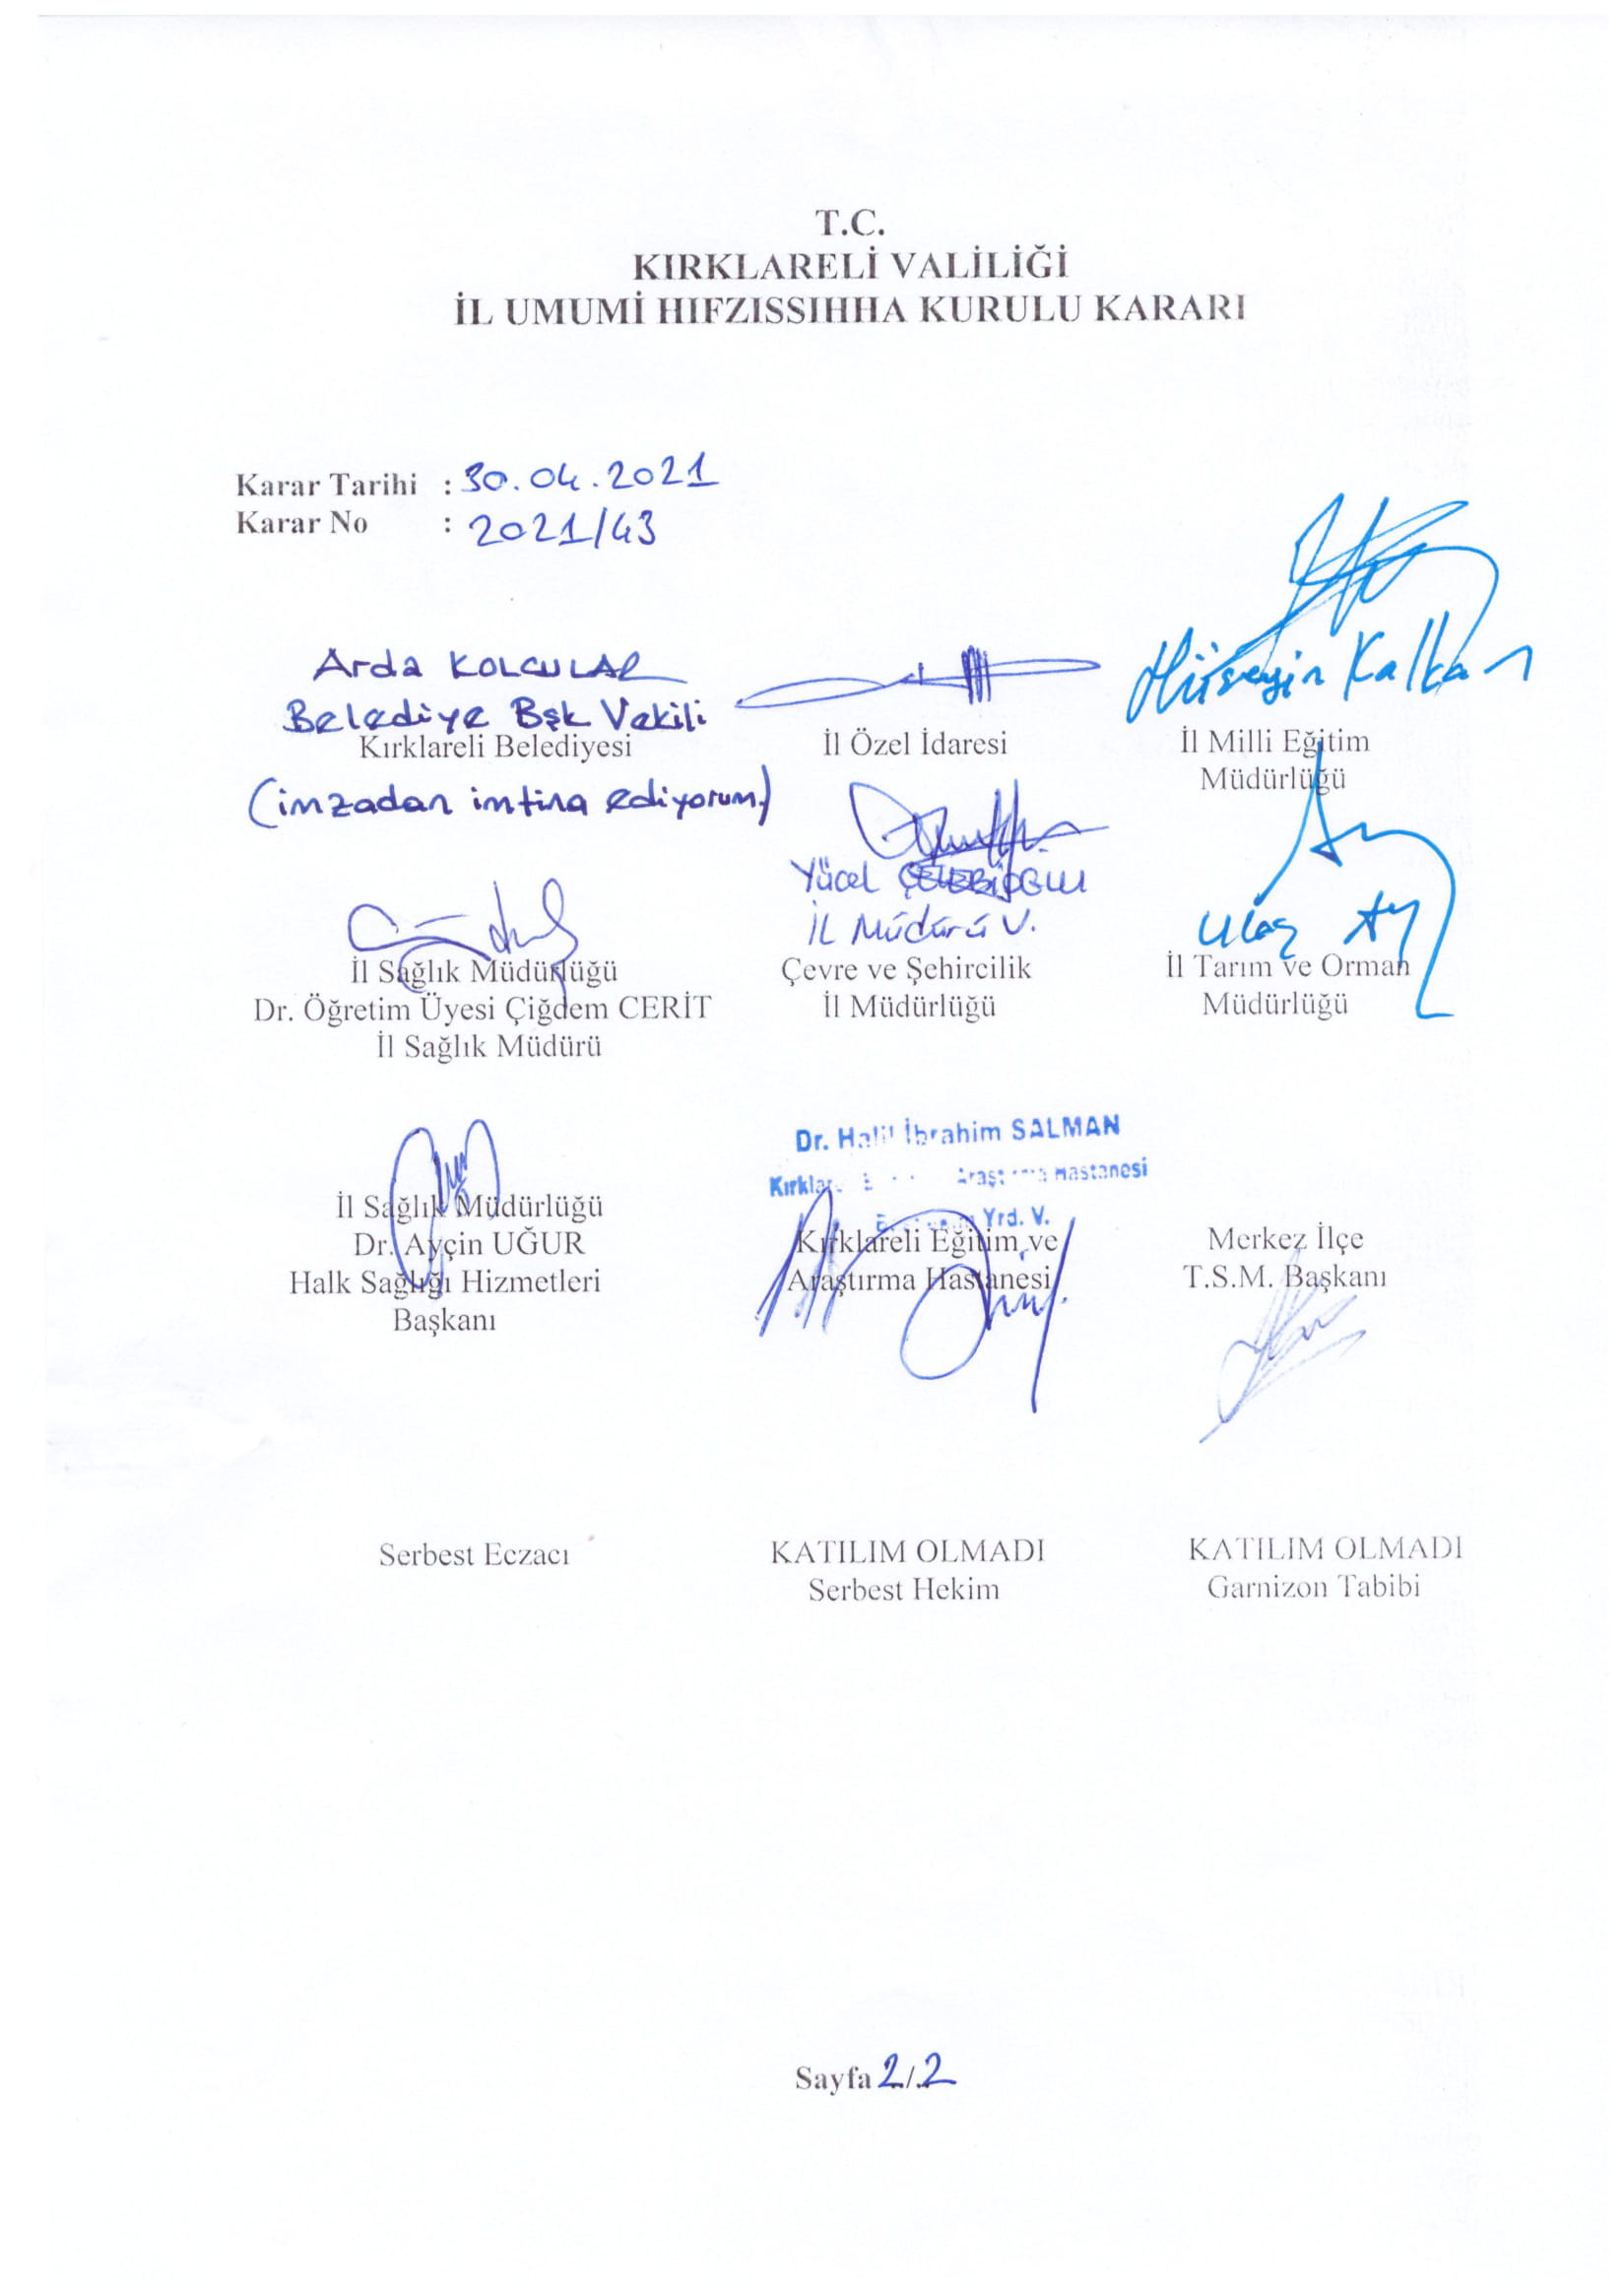 T.C.
KIRKLARELİ VALİLİĞİ
İL UMUMİ HIFZISSIHHA KURULU KARARI
Karar Tarihi : 30.04.2021
Karar No : 2021/43
Arda KOLCULAR
Belediye Bşk Vekili
Kırklareli Belediyesi
(imzadan imtina ediyorum.)
İl Özel İdaresi
Hüseyin Kalkan
İl Milli Eğitim
Müdürlüğü
İl Sağlık Müdürlüğü
Dr. Öğretim Üyesi Çiğdem CERİT
İl Sağlık Müdürü
Yücel ÇELEBİOĞLU
İL Müdürü V.
Çevre ve Şehircilik
İl Müdürlüğü
Ulaş
İl Tarım ve Orman
Müdürlüğü
İl Sağlık Müdürlüğü
Dr. Ayçin UĞUR
Halk Sağlığı Hizmetleri
Başkanı
Dr. Halil İbrahim SALMAN
Hastanesi
Yrd. V.
Kırklareli Eğitim ve
Araştırma Hastanesi
Merkez İlçe
T.S.M. Başkanı
Serbest Eczacı
KATILIM OLMADI
Serbest Hekim
KATILIM OLMADI
Garnizon Tabibi
Sayfa 2/2